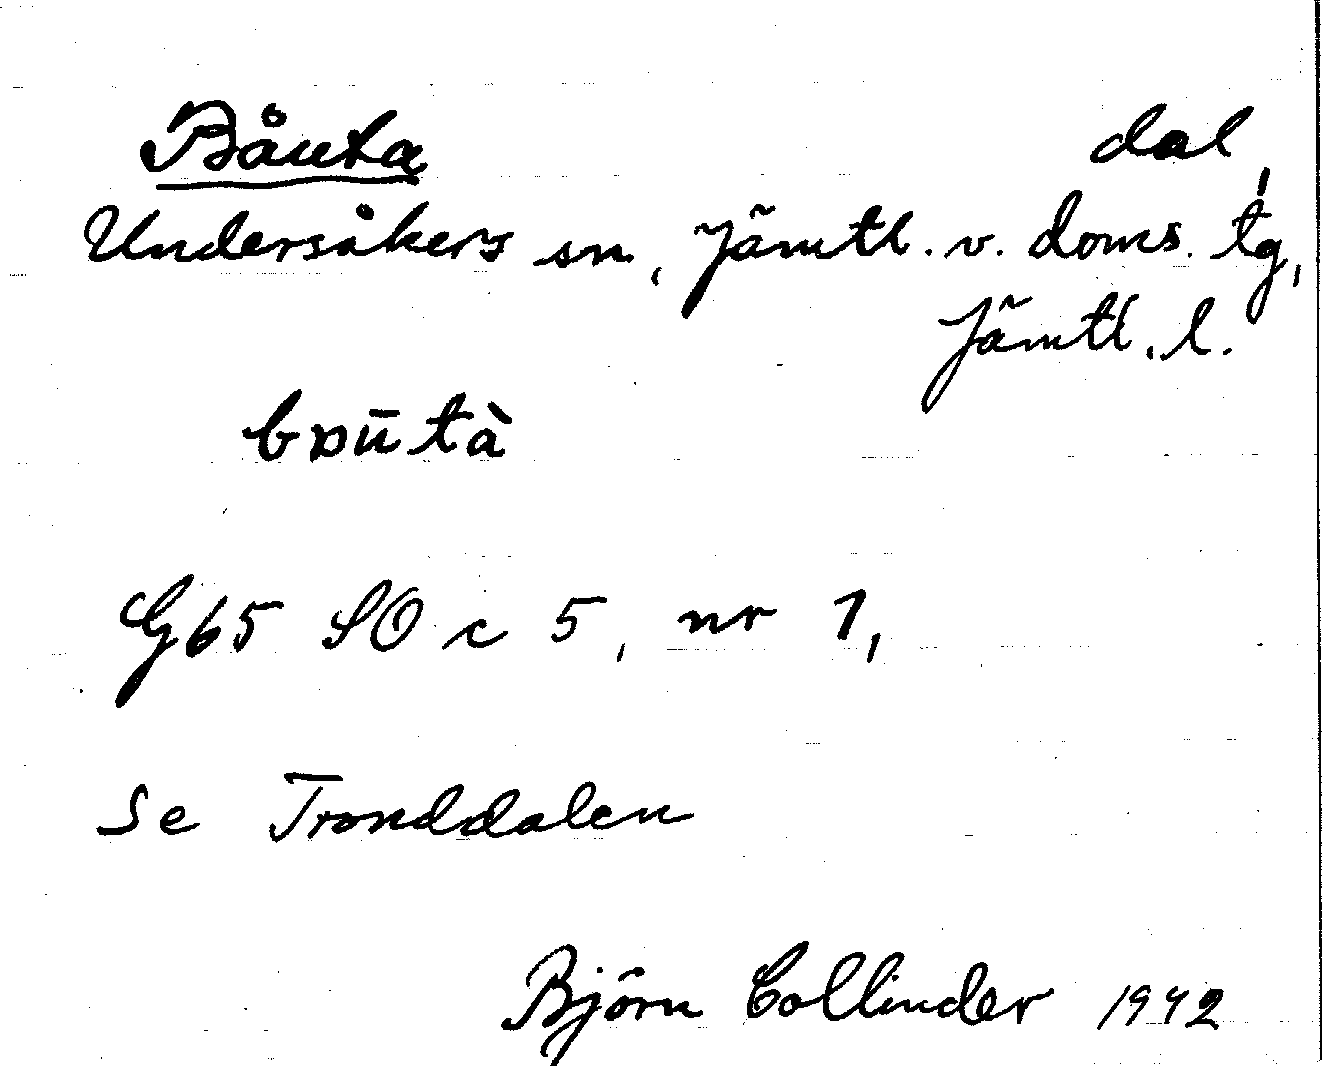 Båuta dal,
Undersåkers sn, Jämtl. v. doms. tg,
Jämtl. l.
bɒūtà
G65 SO c 5, nr 1,
Se Tronddalen
Björn Collinder 1942